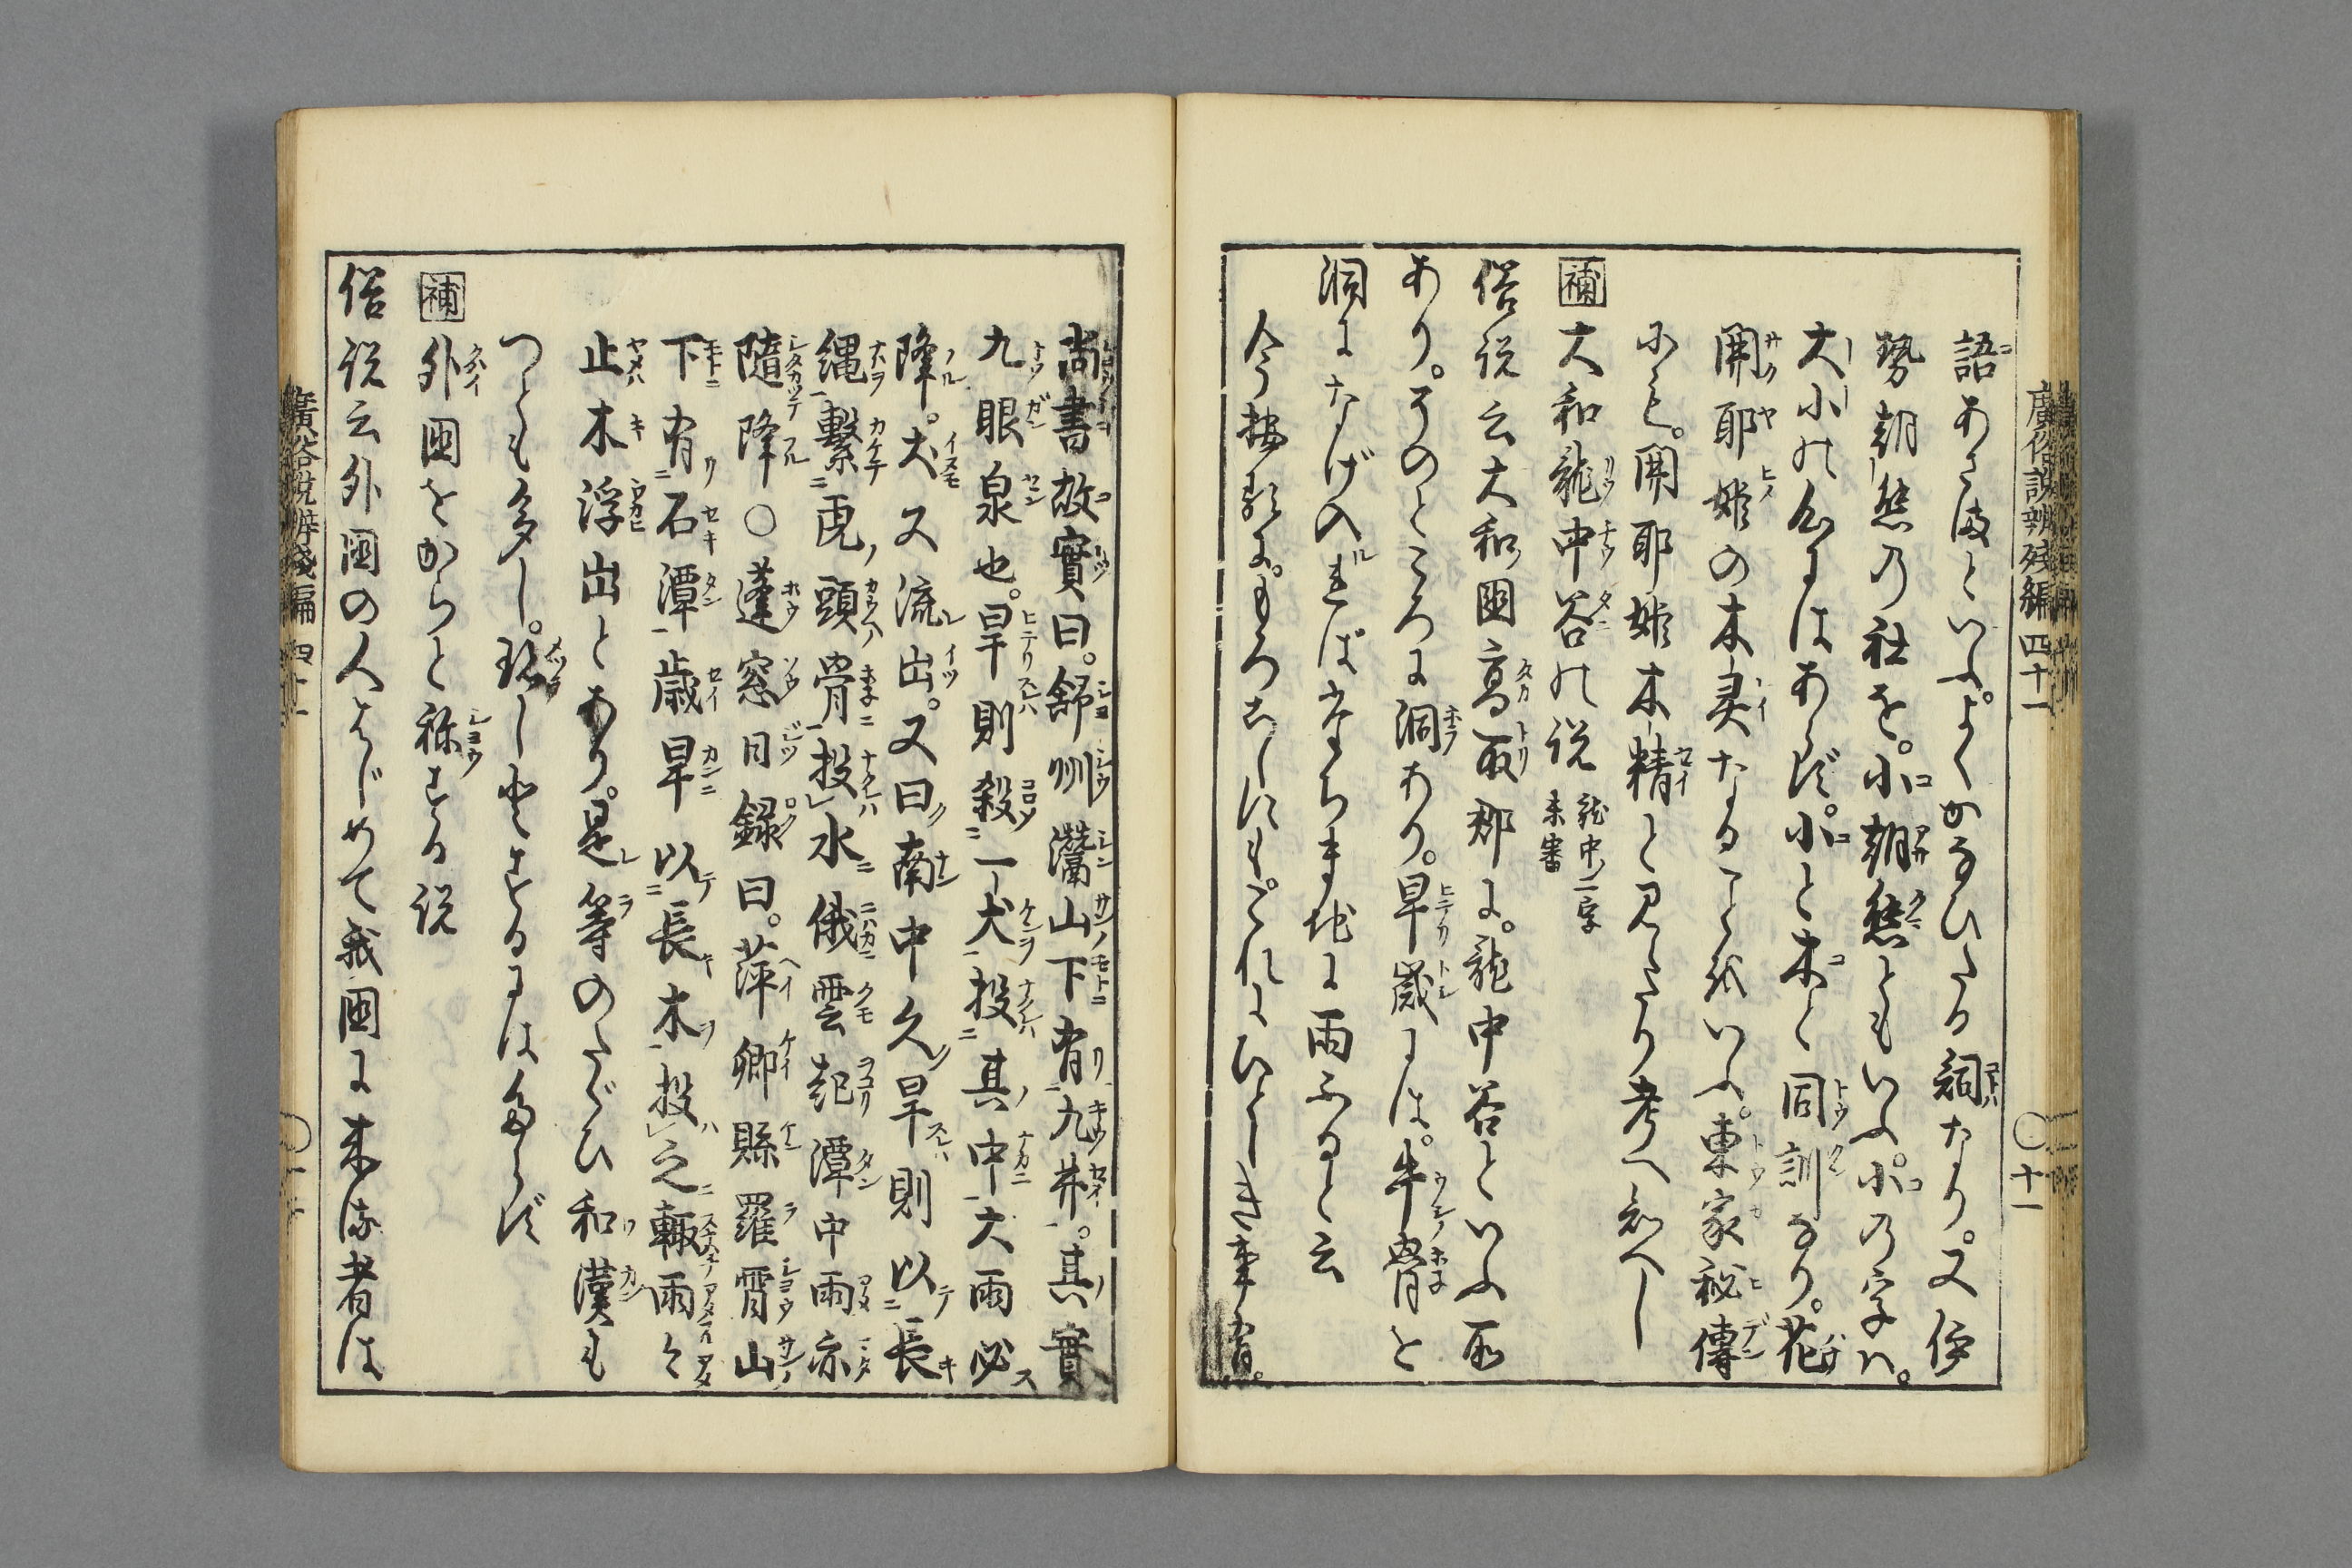 廣俗説辨殘編四十一
〇十一
語あまたといふ。よくかなひたる詞なり。又伊
勢朝熊乃社を。小朝熊ともいふ。小乃字ハ。
大小の心にはあらず。小と木と同訓なり。花
開耶姫の木灵なること越いふ。東家秘傳
にも。開耶姫木精と見えたり考へ知へし
補
大和龍中谷の説 龍中ノ二字未審
俗説云大和国高取郡に。龍中谷といふ所
あり。そのところに洞あり。旱歳には。牛骨を
洞になげ入ればすなはち其地に雨ふると云
今按ずるに。もろこしにも。これにひとしき事有。
尚書故實曰。舒州灊山下有九井。其實
九眼泉也。旱則殺一犬投其中大雨必
降。犬又流出。又曰南中久旱則以長
縄繫虎頭骨投水俄雲起潭中雨亦
隨降〇蓬窓日録曰。萍郷縣羅霄山
下有石潭歳旱以長木投之輙雨々
止木浮出とあり。是等のたぐひ和漢も
つとも多し。珍しとするには多らず
補
外国をからと称する説
俗説云外国の人はじめて我国に来る者は
廣俗説辨殘編四十一